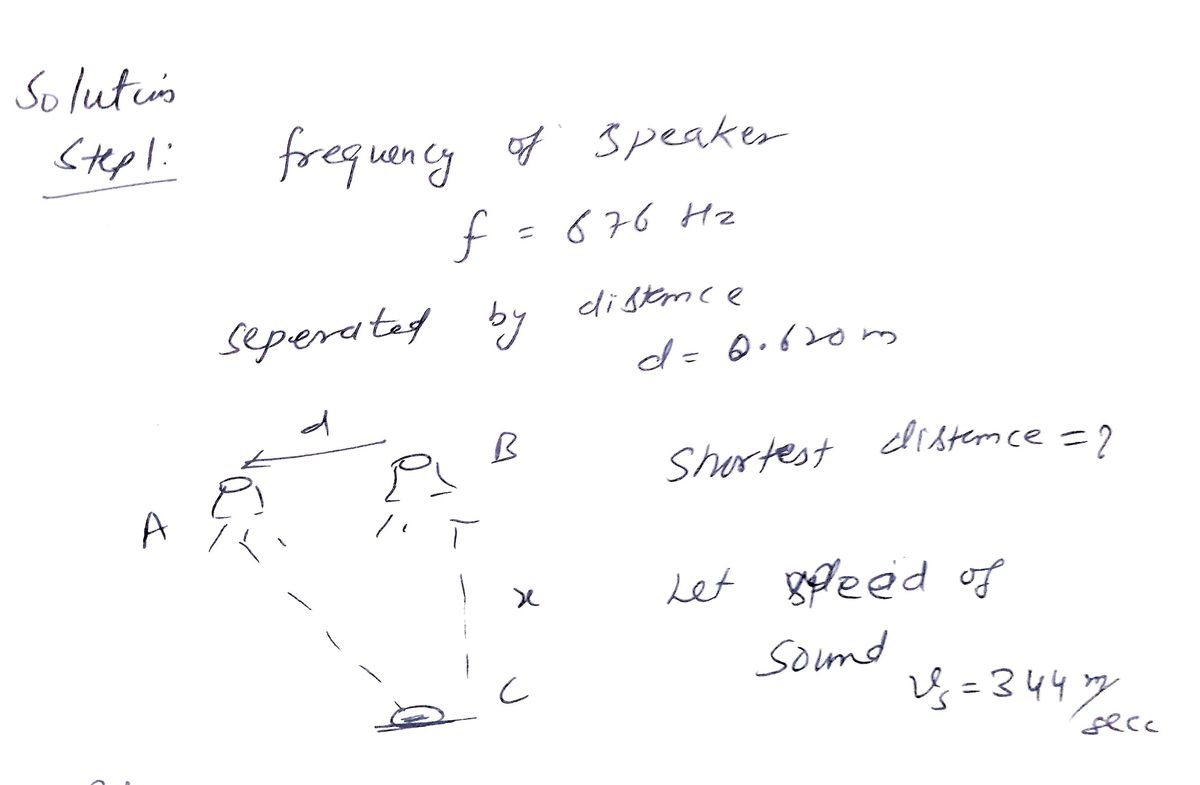 Solutin
Step1: frequency of speaker
f = 676 Hz
seperated by distance
d = 0.620 m
d
B
A
Shortest distance = ?
x
Let speed of
sound
C
vs = 344 m/secc